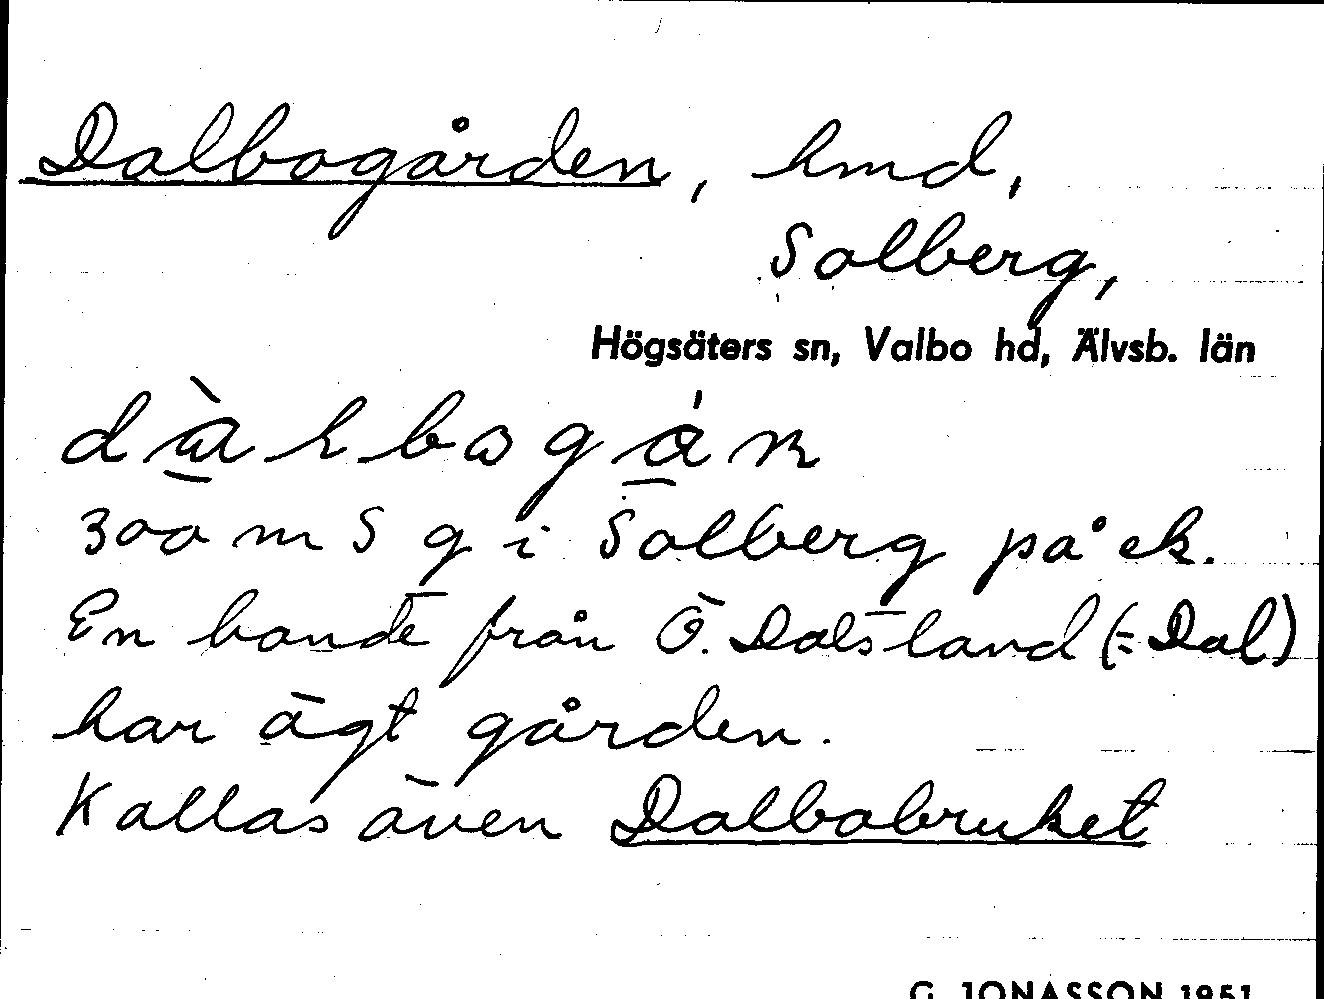 Dalbogården, hmd,
Solberg,
Högsäters sn, Valbo hd, Älvsb. län
300 m S g i Solberg på ek.
En bonde från Ö. Dalsland (= Dal)
har ägt gården.
Kallas även Dalbobruket
G. JONASSON 1951